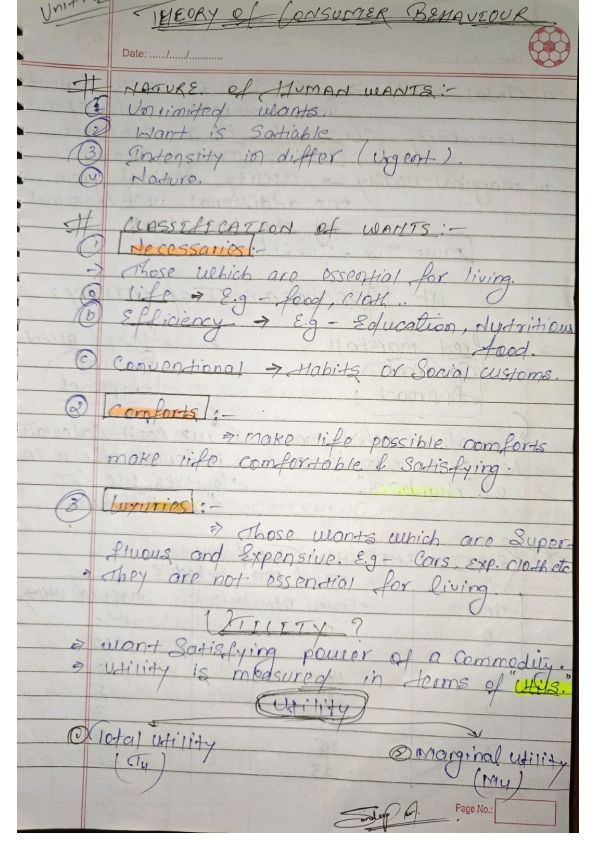 Unit-2
THEORY of CONSUMER BEHAVIOUR
Date: ....../....../............
# NATURE of HUMAN WANTS :-
① Unlimited wants.
② Want is Satiable
③ Intensity in differ (urgent).
④ Nature.
# CLASSIFICATION of WANTS :-
① Necessaries :-
→ Those which are essential for living.
ⓐ life → E.g - food, cloth..
ⓑ Efficiency → Eg - Education, Nutritious
food.
ⓒ Conventional → Habits or Social customs.
② Comforts :-
⇒ make life possible comforts
make life comfortable & Satisfying.
③ Luxuries :-
⇒ Those wants which are Super-
fluous and Expensive. E.g - Cars, exp. cloth etc
→ They are not essential for living.
UTILITY ?
⇒ want Satisfying power of a commodity.
⇒ utility is measured in terms of "utils."
Utility
① Total utility
② Marginal utility
(Tu)
(Mu)
Page No.: